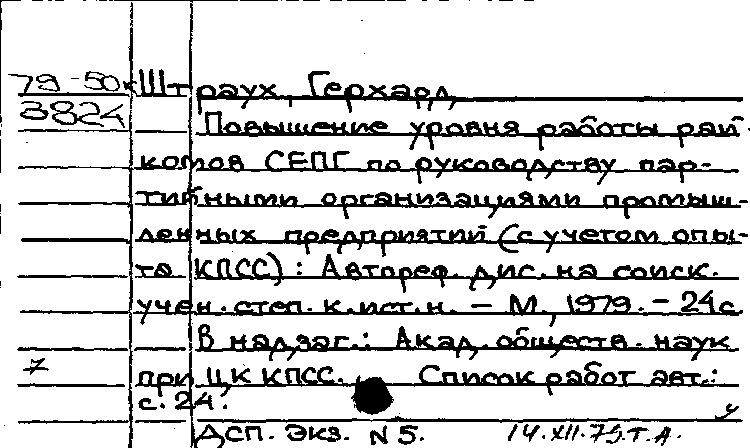 79-50к Штраух, Герхард
3824
Повышение уровня работы рай-
комов СЕПГ по руководству пар-
тийными организациями промыш-
ленных предприятий (с учетом опы-
та КПСС) : Автореф. дис. на соиск.
учен. степ. к. ист. н. – М., 1979. – 24с.
В надзаг.: Акад. обществ. наук
при ЦК КПСС. Список работ авт.:
с. 24.
ДСП. Экз. N 5. 14.XII.79. Т.А.